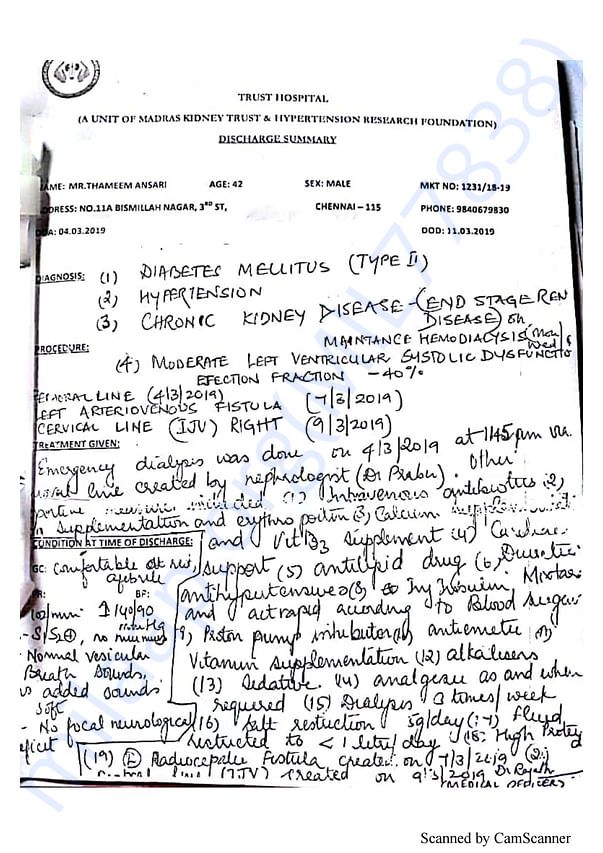 TRUST HOSPITAL
(A UNIT OF MADRAS KIDNEY TRUST & HYPERTENSION RESEARCH FOUNDATION)
DISCHARGE SUMMARY
AME: MR.THAMEEM ANSARI AGE: 42 SEX: MALE MKT NO: 1231/18-19
DRESS: NO.11A BISMILLAH NAGAR, 3RD ST, CHENNAI – 115 PHONE: 9840679830
OA: 04.03.2019 DOD: 11.03.2019
DIAGNOSIS: (1) DIABETES MELLITUS (TYPE II)
(2) HYPERTENSION
(3) CHRONIC KIDNEY DISEASE - (END STAGE REN
DISEASE) on
MAINTANCE HEMODIALYSIS (Mon/
Wed/
PROCEDURE:
(4) MODERATE LEFT VENTRICULAR SYSTOLIC DYSFUNCTIO
EJECTION FRACTION - 40%
FEMORAL LINE (4/3/2019)
LEFT ARTERIOVENOUS FISTULA (7/3/2019)
CERVICAL LINE (IJV) RIGHT (9/3/2019)
TREATMENT GIVEN:
Emergency dialysis was done on 4/3/2019 at 1145pm via
line created by nephrologist (Dr Prabu). Other
(1) Intravenous antibiotics (2)
supplementation and erythropoitin (3) Calcium
and Vit D3 supplement (4) Cardiac
CONDITION AT TIME OF DISCHARGE:
support (5) antilipid drug (6) Diuretic
GC: Comfortable at rest,
afebrile
antihypertensives (8) Inj Insulin Mixtard
PR: BP:
102/min 140/90
mmHg
and actrapid according to Blood sugar
- S1S2 +, no murmurs
Proton pump inhibitor antiemetic
- Normal vesicular
Breath sounds,
Vitamin supplementation (12) alkalisers
added sounds
(13) Sedative (14) analgesic as and when
soft
required (15) Dialysis 3 times/week
- No focal neurological
(16) Salt restriction 5g/day (17) fluid
eficit
restricted to < 1 litre/day (18) High Protein
(19) Radiocephalic Fistula created on 7/3/2019
line (IJV) created on 9/3/2019
MEDICAL OFFICERS
Scanned by CamScanner